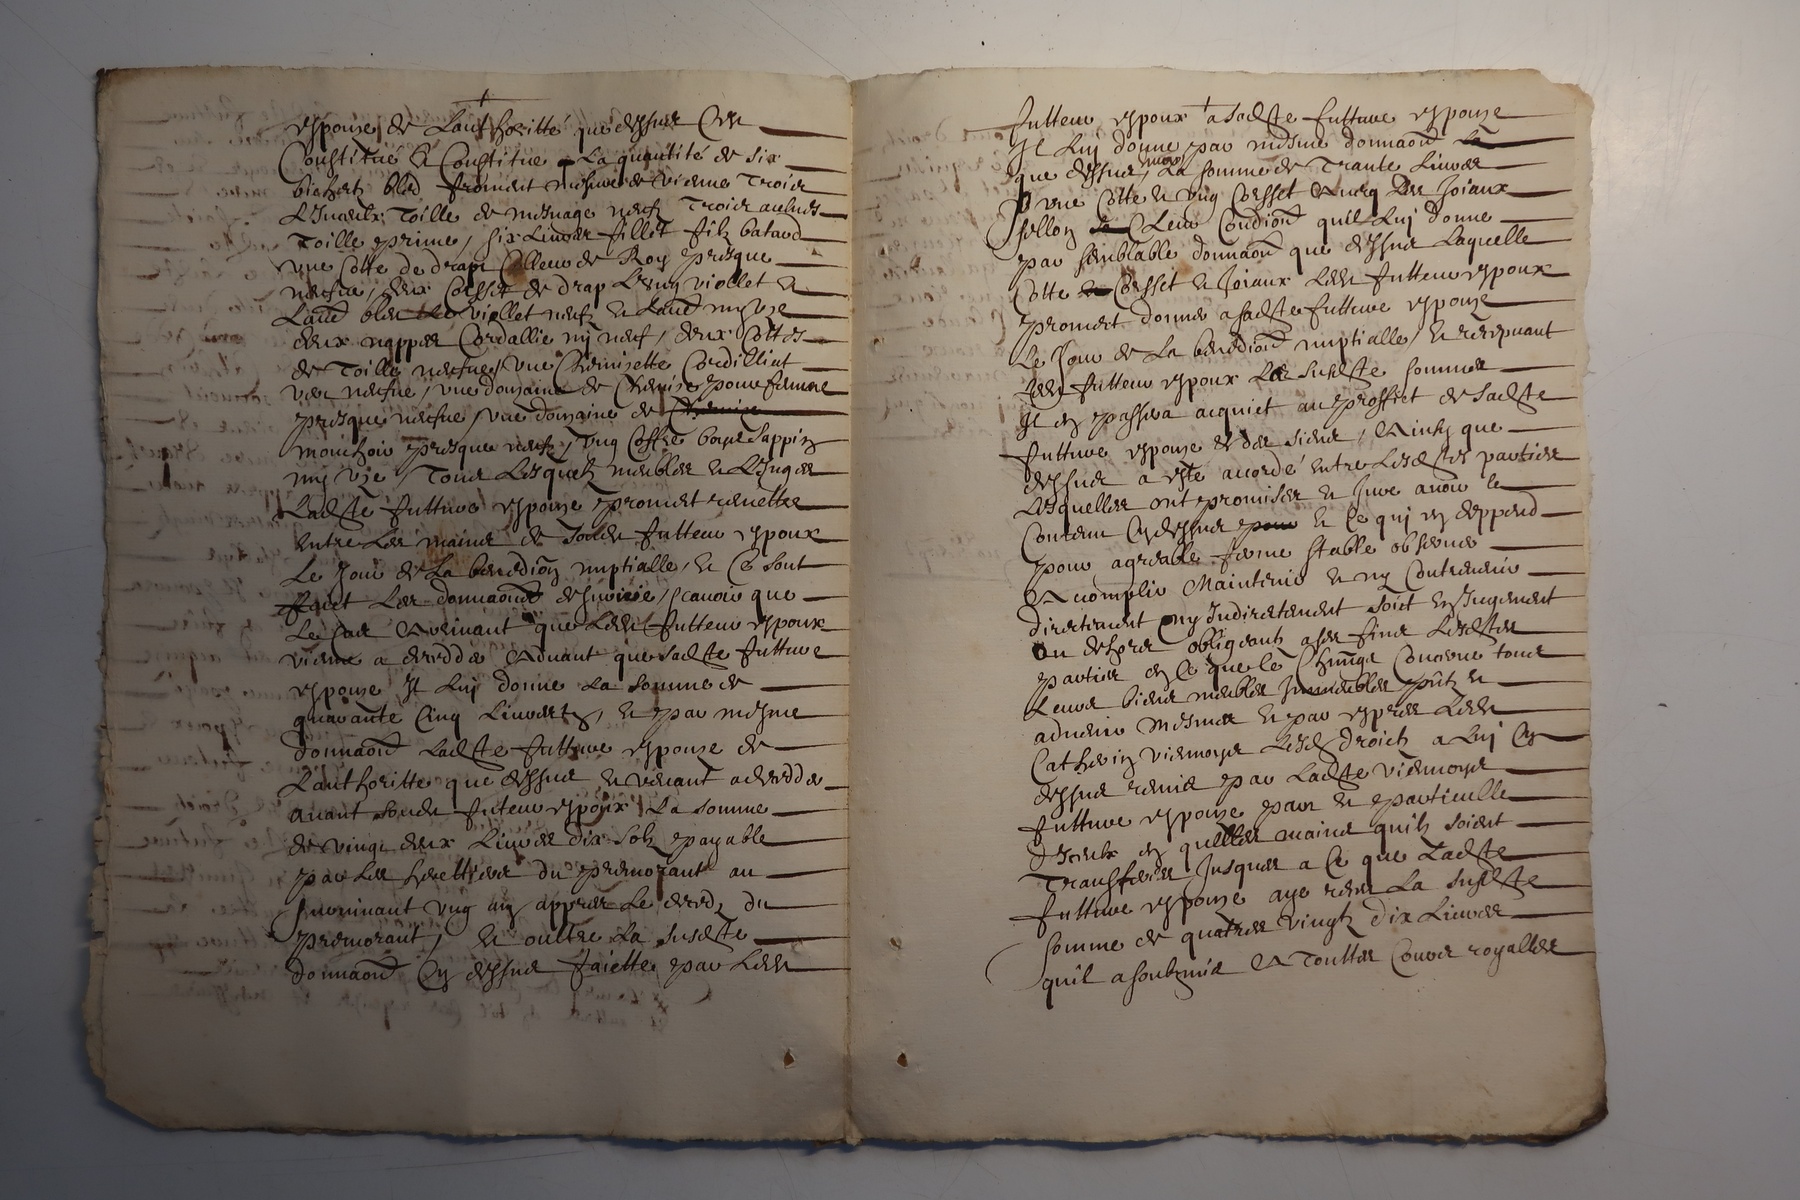 espouse de Lauthoritté que dessus C'est
Constitué et Constitue La quantité de six
bichetz bled froment mesure de vienne Trois
Linceulx Toille de mesnage neufz Trois aulnes
Toille prime, six Livres fillet filz batard
une Cotte de drap Colleur de Roy presque
neufve, deux Corsset de drap L'ung viollet et
Laud bleu viollet neufz et Laud my uze
deux nappes Cordallie my neuf, deux Cottes
de Toille neufves, une Chemisette Cordilliat
vert neufve, une douzaine de Chemise pour femme
presque neufve, une douzaine de
mouchoir presque neufz, ung Coffre boys Sappin
my uze, Tous Lesquelz meubles et Linges
Ladte futture espouse promet remettre
entre Les mains de Sondt futteur espoux
Le Jour de La benedion nuptialle, et Ce sont
faict Les donnaons desuivie, scavoir que
Le Cas Advenant que Ledt futteur espoux
vienne a deredder Advant que Sadte futture
espouse Il Luy donne La somme de
quarante Cinq Livvres, et par mesme
donnaon Ladte futture espouse de
Lauthoritté que dessus et venant a deredder
avant Sondt futeur espoux La somme
de vingt deux Livres dix Solz payable
par Les herittiers du premorant au
survivant ung an appres Le deredz du
premorant, et oultre La Susdte
donnaon Cy dessus faiette par Ledt
futteur espoux a Sadte futture espouse
Il Luy donne par mesme donnaon
que dessus, La somme de Trante Livres
une Cotte et ung Corsset Avecq Les Joiaux
sellon Leur Condion quil Luy donne
par semblable donnaon que dessus Laquelle
Cotte Corsset et Joiaux Ledt futteur espoux
promet donner a Sadte futture espouse
Le Jour de La benedion nuptialle, et recepvant
Ledt futteur espoux Les Susdte sommes
Il en passera acquict au proffict de Sadte
futture espouse et des siens, Ainsy que
dessus a esté accordé entre Lesdtes parties
Lesquelles ont promises et Jure avoir le
Contenu Cydessus et Ce qui en deppend
pour agreable ferme stable observer
Acomplir Maintenir et ny Contrevenir
directement ny Indirectement soict en Jugement
ou dehors obligeantz a ses fins Lesdtes
parties en Ce que le Chung Concerne tous
Leurs biens meubles Immeubles pntz et
advenir mesmes et par expres Ledt
Catherin viemoys Lesd droictz a Luy Cy
dessus remis par Ladte viemoys
futture espouse part et particulle
d'Iceulx en quelles mains quilz soient
Transferes, Jusques a Ce que Ladte
futture espouse aye reeu La Susdte
somme de quatres vingtz dix Livres
quil a soubzmis A Touttes Cours royalles